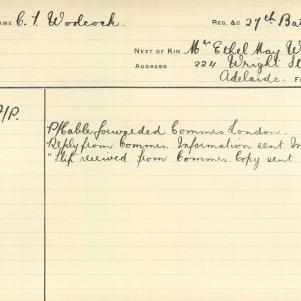 NAME C. F. Woolcock. REG. &C 27th Bat
NEXT OF KIN Mrs Ethel May W
ADDRESS 224 Wright St
Adelaide. F
/P. P/Cable forwarded Commrs London.
Reply from Commrs. Information sent
"Slip" received from Commrs. Copy sent